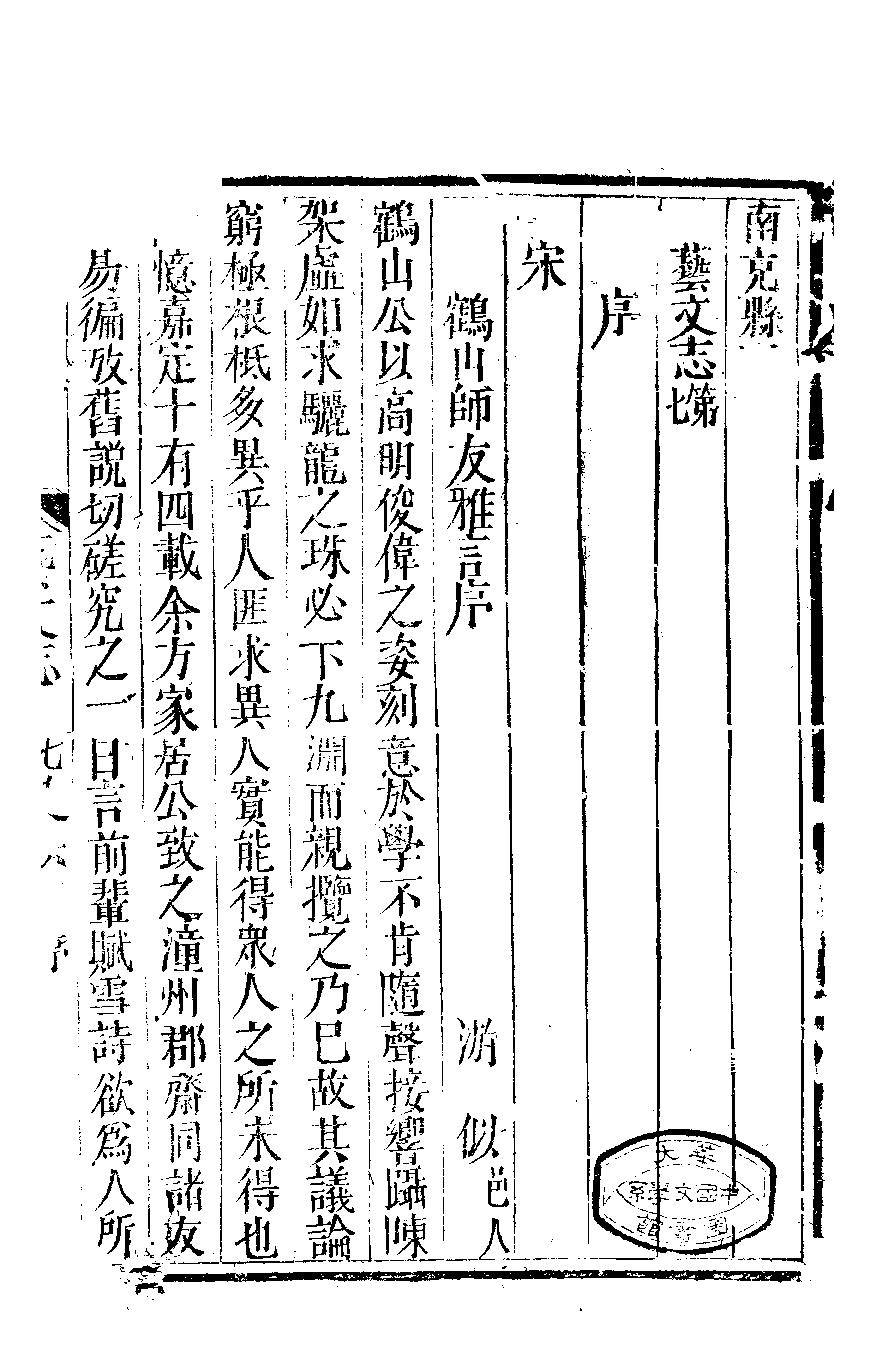 南充縣
藝文志第七
序
宋
鶴山師友雅言序 游似邑人
鶴山公以高明俊偉之姿刻意於學不肯隨聲接響躡陳
架虛如求驪龍之珠必下九淵而親攬之乃巳故其議論
窮極根柢多異乎人匪求異人實能得衆人之所未得也
憶嘉定十有四載余方家居公致之潼州郡齋同諸友
易徧攷舊説切磋究之一日言前輩賦雪詩欲爲人所
七 序
華大
中國文學系
圖書館